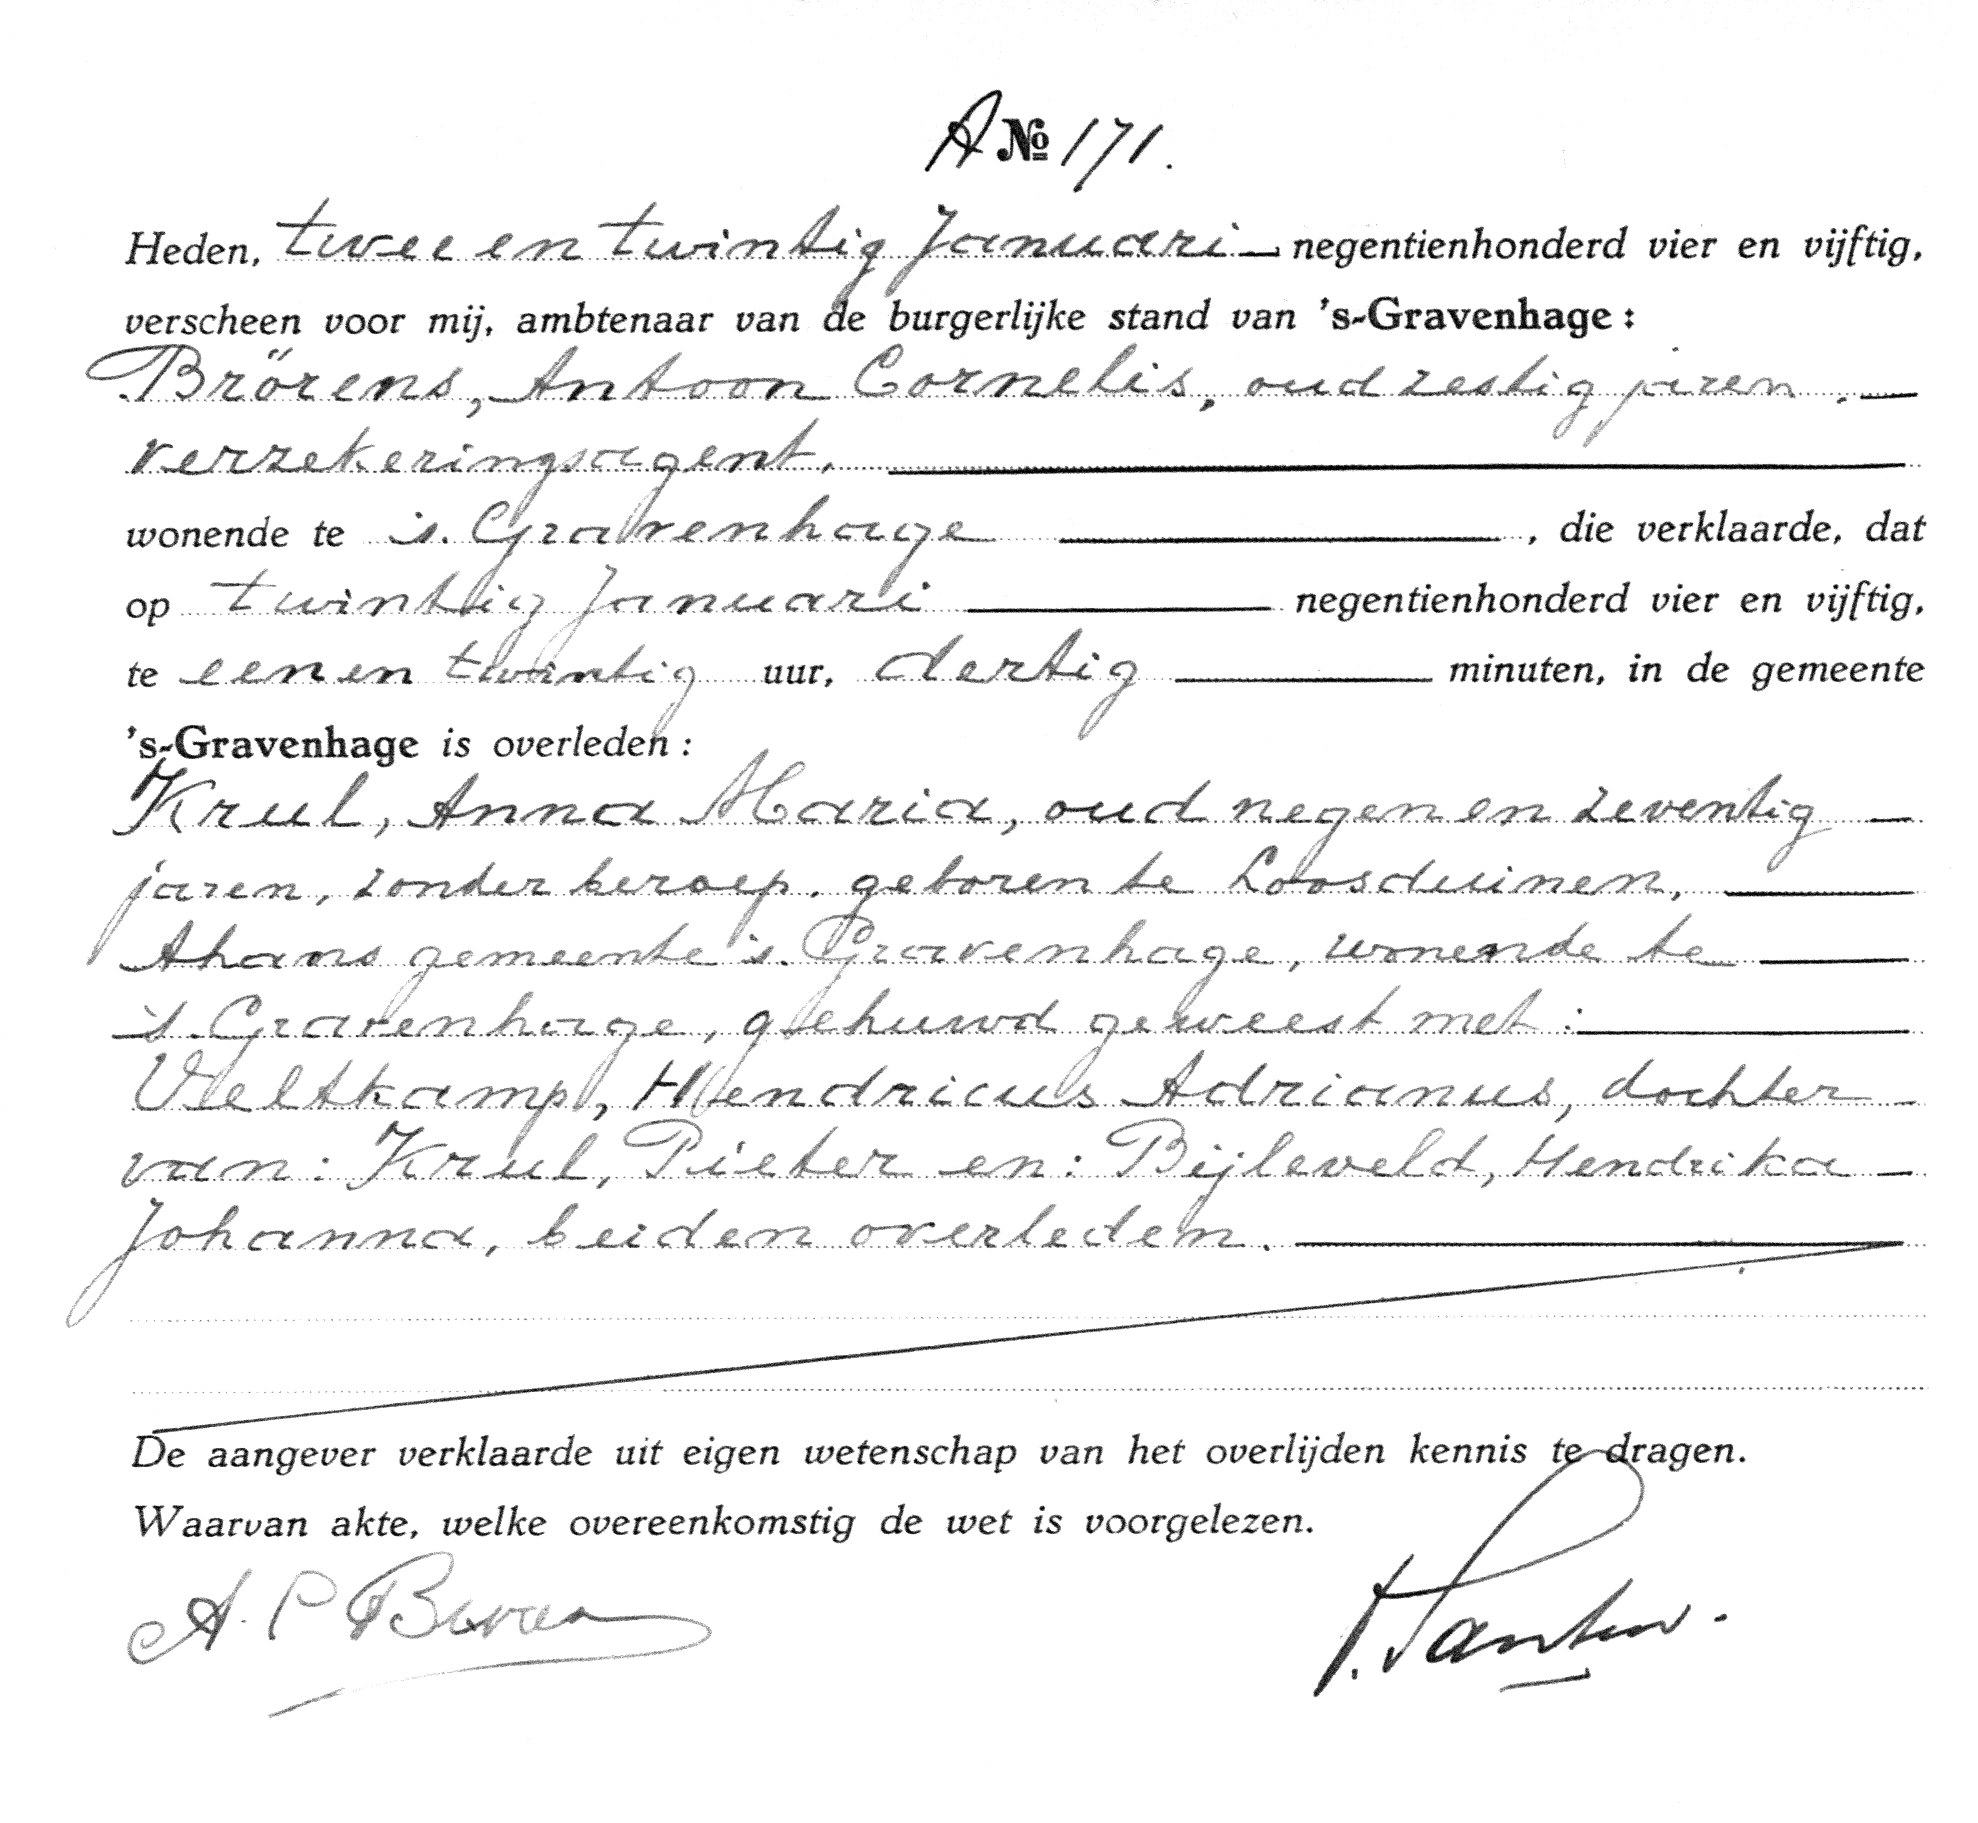 A № 171.
Heden, twee en twintig Januari negentienhonderd vier en vijftig,
verscheen voor mij, ambtenaar van de burgerlijke stand van 's-Gravenhage:
Brörens, Antoon Cornelis, oud zestig jaren,
verzekeringsagent,
wonende te 's-Gravenhage, die verklaarde, dat
op twintig Januari negentienhonderd vier en vijftig,
te een en twintig uur, dertig minuten, in de gemeente
's-Gravenhage is overleden:
Krul, Anna Maria, oud negen en zeventig
jaren, zonder beroep, geboren te Loosduinen,
thans gemeente 's-Gravenhage, wonende te
's-Gravenhage, gehuwd geweest met:
Veltkamp, Hendricus Adrianus, dochter
van: Krul, Pieter en: Bijleveld, Hendrika
Johanna, beiden overleden.
De aangever verklaarde uit eigen wetenschap van het overlijden kennis te dragen.
Waarvan akte, welke overeenkomstig de wet is voorgelezen.
A. C.